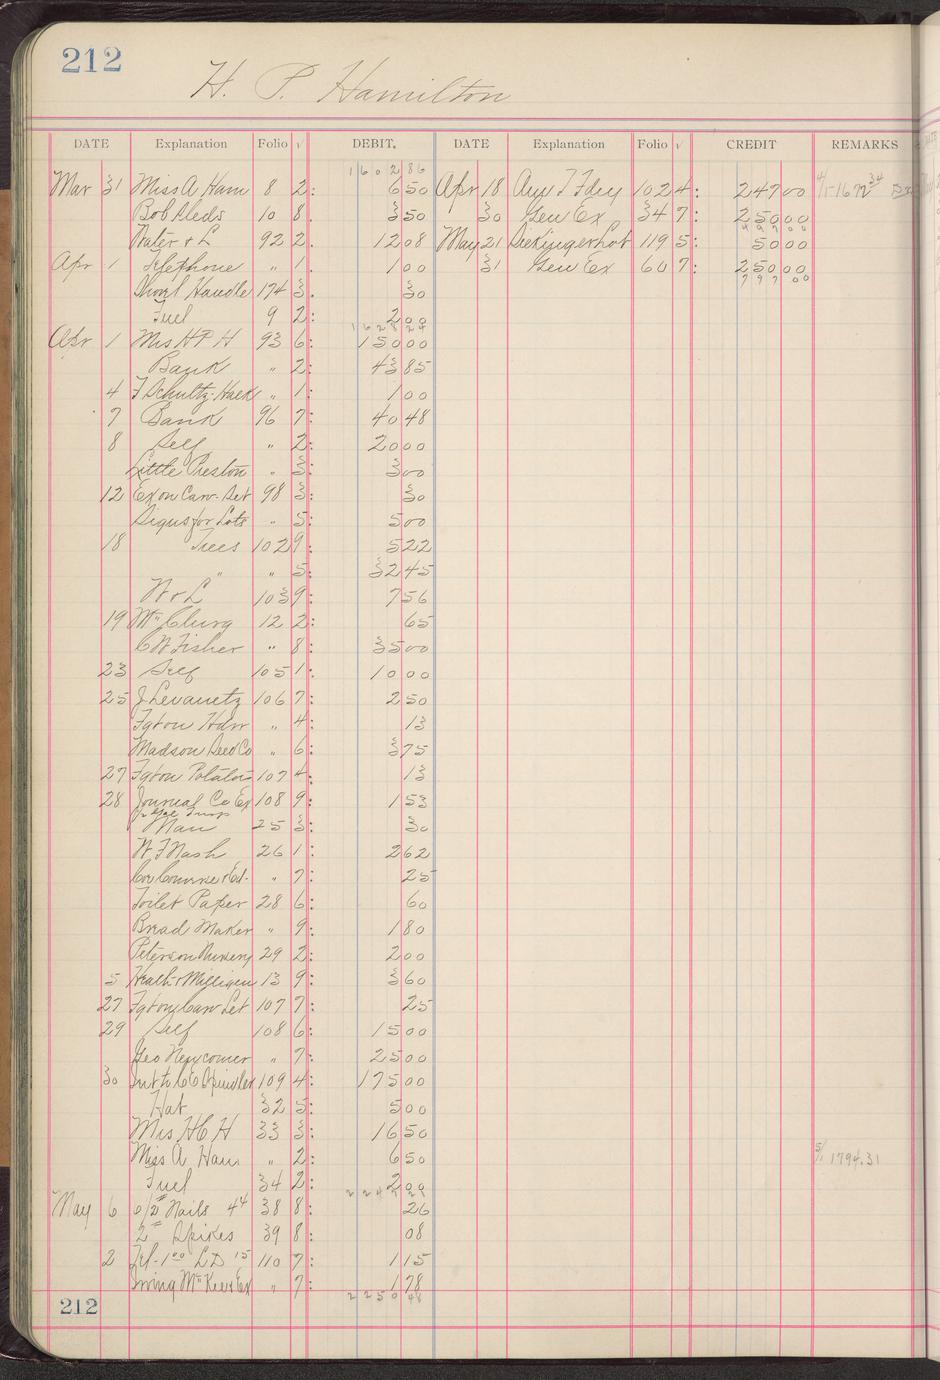 212
H. P. Hamilton
DATE Explanation Folio √ DEBIT. DATE Explanation Folio √ CREDIT REMARKS
1602 86
Mar 31 Miss A Ham 8 2: 6 50 Apr 18 Aug T Frey 102 4: 247 00 4/1 - 1672 34
Bob Sleds 10 8. 3 50 30 Gen Ex 34 7: 250 00
497 00
Water & L 92 2. 12 08 May 21 Lot 119 5: 50 00
Apr 1 Telephone " 1. 1 00 31 Gen Ex 60 7: 250 00
797 00
Shovel Handle 174 3. 30
Fuel 9 2: 2 00
1628 24
Apr 1 Mrs H P H 93 6: 150 00
Bank " 2: 43 85
4 F Schultz-Hack " 1: 1 00
7 Bank 96 7: 40 48
8 Self " 2: 20 00
Little Preston " 3: 3 00
12 Ex on Carv-Set 98 3: 30
Signs for Lots " 5: 5 00
18 Trees 102 9: 5 22
" " 5: 32 45
W & L 103 9: 7 56
19 McClurg 12 2: 65
C W Fisher " 8: 35 00
23 Self 105 1: 10 00
25 J Levanetz 106 7: 2 50
Fgt on Hdw " 4: 13
Madson Seed Co " 6: 3 75
27 Fgt on Potatoes 107 4. 13
28 Journal Co Ex 108 9: 1 53
Man 25 3: 30
W F Nash 26 1: 2 62
Cor Course & Ex. " 7: 25
Toilet Paper 28 6: 60
Bread Maker " 9: 1 80
Peterson Nursery 29 2: 2 00
5 Heath & Milligan 13 9: 3 60
27 Fgt on Carv Set 107 7: 25
29 Self 108 6: 15 00
Geo Newcomer " 7: 25 00
30 Int to C E Spindler 109 4: 175 00
Hat 32 5: 5 00
Mrs H C H 33 3: 16 50
Miss A Ham " 2: 6 50 5/1 1794.31
Fuel 34 2: 2 00
May 6 6/20# Nails 4¢ 38 8: 26
2# Spikes 39 8: 08
2 Tel-1⁰⁰ L D 15 110 7: 1 15
Irving McKee & Ex " 7: 1 78
2250 48
212